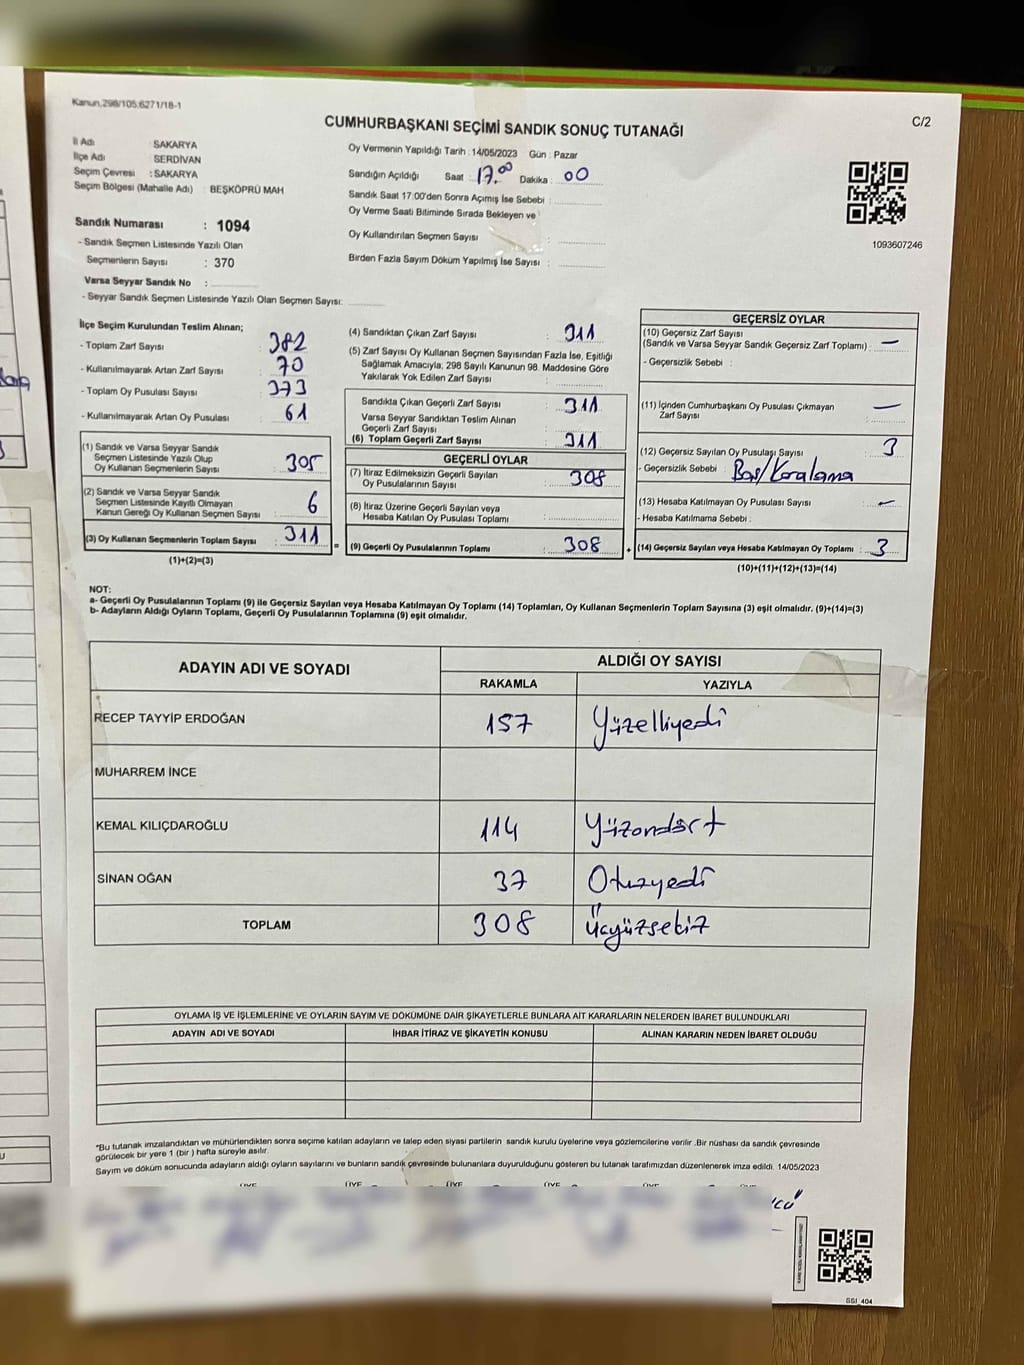 Kanun,298/105;6271/18-1
C/2
CUMHURBAŞKANI SEÇİMİ SANDIK SONUÇ TUTANAĞI
İl Adı : SAKARYA
İlçe Adı : SERDİVAN
Seçim Çevresi : SAKARYA
Seçim Bölgesi (Mahalle Adı) : BEŞKÖPRÜ MAH
Sandık Numarası : 1094
- Sandık Seçmen Listesinde Yazılı Olan
Seçmenlerin Sayısı : 370
Varsa Seyyar Sandık No :
- Seyyar Sandık Seçmen Listesinde Yazılı Olan Seçmen Sayısı:
Oy Vermenin Yapıldığı Tarih : 14/05/2023 Gün : Pazar
Sandığın Açıldığı Saat : 17.00 Dakika : 00
Sandık Saat 17:00'den Sonra Açımış İse Sebebi :
Oy Verme Saati Bitiminde Sırada Bekleyen ve
Oy Kullandırılan Seçmen Sayısı :
Birden Fazla Sayım Döküm Yapılmış İse Sayısı :
1093607246
İlçe Seçim Kurulundan Teslim Alınan;
- Toplam Zarf Sayısı : 382
- Kullanılmayarak Artan Zarf Sayısı : 70
- Toplam Oy Pusulası Sayısı : 373
- Kullanılmayarak Artan Oy Pusulası : 61
(1) Sandık ve Varsa Seyyar Sandık
Seçmen Listesinde Yazılı Olup
Oy Kullanan Seçmenlerin Sayısı : 305
(2) Sandık ve Varsa Seyyar Sandık
Seçmen Listesinde Kayıtlı Olmayan
Kanun Gereği Oy Kullanan Seçmen Sayısı : 6
(3) Oy Kullanan Seçmenlerin Toplam Sayısı : 311 =
(1)+(2)=(3)
(4) Sandıktan Çıkan Zarf Sayısı : 311
(5) Zarf Sayısı Oy Kullanan Seçmen Sayısından Fazla İse, Eşitliği
Sağlamak Amacıyla; 298 Sayılı Kanunun 98. Maddesine Göre
Yakılarak Yok Edilen Zarf Sayısı :
Sandıkta Çıkan Geçerli Zarf Sayısı : 311
Varsa Seyyar Sandıktan Teslim Alınan
Geçerli Zarf Sayısı :
(6) Toplam Geçerli Zarf Sayısı : 311
GEÇERLİ OYLAR
(7) İtiraz Edilmeksizin Geçerli Sayılan
Oy Pusulalarının Sayısı : 308
(8) İtiraz Üzerine Geçerli Sayılan veya
Hesaba Katılan Oy Pusulası Toplamı :
(9) Geçerli Oy Pusulalarının Toplamı : 308 +
GEÇERSİZ OYLAR
(10) Geçersiz Zarf Sayısı
(Sandık ve Varsa Seyyar Sandık Geçersiz Zarf Toplamı) : —
- Geçersizlik Sebebi :
(11) İçinden Cumhurbaşkanı Oy Pusulası Çıkmayan
Zarf Sayısı : —
(12) Geçersiz Sayılan Oy Pusulası Sayısı : 3
- Geçersizlik Sebebi : Boş/Karalama
(13) Hesaba Katılmayan Oy Pusulası Sayısı : —
- Hesaba Katılmama Sebebi :
(14) Geçersiz Sayılan veya Hesaba Katılmayan Oy Toplamı : 3
(10)+(11)+(12)+(13)=(14)
NOT:
a- Geçerli Oy Pusulalarının Toplamı (9) ile Geçersiz Sayılan veya Hesaba Katılmayan Oy Toplamı (14) Toplamları, Oy Kullanan Seçmenlerin Toplam Sayısına (3) eşit olmalıdır. (9)+(14)=(3)
b- Adayların Aldığı Oyların Toplamı, Geçerli Oy Pusulalarının Toplamına (9) eşit olmalıdır.
ADAYIN ADI VE SOYADI
ALDIĞI OY SAYISI
RAKAMLA YAZIYLA
RECEP TAYYİP ERDOĞAN 157 Yüzelliyedi
MUHARREM İNCE
KEMAL KILIÇDAROĞLU 114 Yüzondört
SİNAN OĞAN 37 Otuzyedi
TOPLAM 308 Üçyüzsekiz
OYLAMA İŞ VE İŞLEMLERİNE VE OYLARIN SAYIM VE DÖKÜMÜNE DAİR ŞİKAYETLERLE BUNLARA AİT KARARLARIN NELERDEN İBARET BULUNDUKLARI
ADAYIN ADI VE SOYADI İHBAR İTİRAZ VE ŞİKAYETİN KONUSU ALINAN KARARIN NEDEN İBARET OLDUĞU
*Bu tutanak imzalandıktan ve mühürlendikten sonra seçime katılan adayların ve talep eden siyasi partilerin sandık kurulu üyelerine veya gözlemcilerine verilir .Bir nüshası da sandık çevresinde
görülecek bir yere 1 (bir ) hafta süreyle asılır.
Sayım ve döküm sonucunda adayların aldığı oyların sayılarını ve bunların sandık çevresinde bulunanlara duyurulduğunu gösteren bu tutanak tarafımızdan düzenlenerek imza edildi. 14/05/2023
ÜYE ÜYE ÜYE ÜYE ÜYE
SSI_404